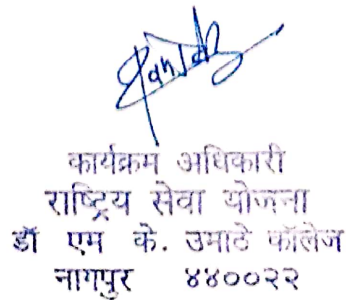 कार्यक्रम अधिकारी
राष्ट्रिय सेवा योजना
डॉ एम के. उमाठे कॉलेज
नागपुर ४४००२२